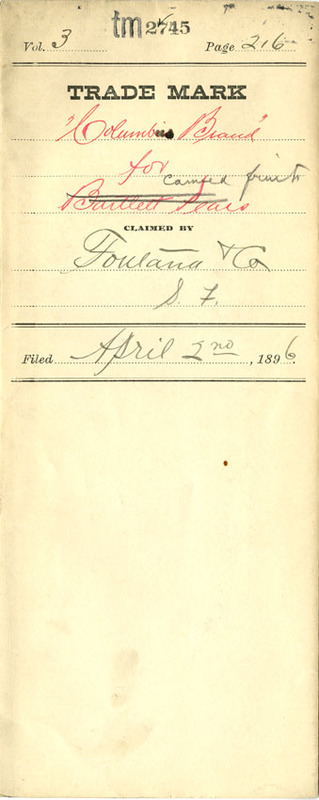 tm 2745
Vol. 3 Page 216
TRADE MARK
"Columbus Brand"
for canned fruits
Bartlett Pears
CLAIMED BY
Fontana & Co
S F.
Filed April 2nd, 1896.